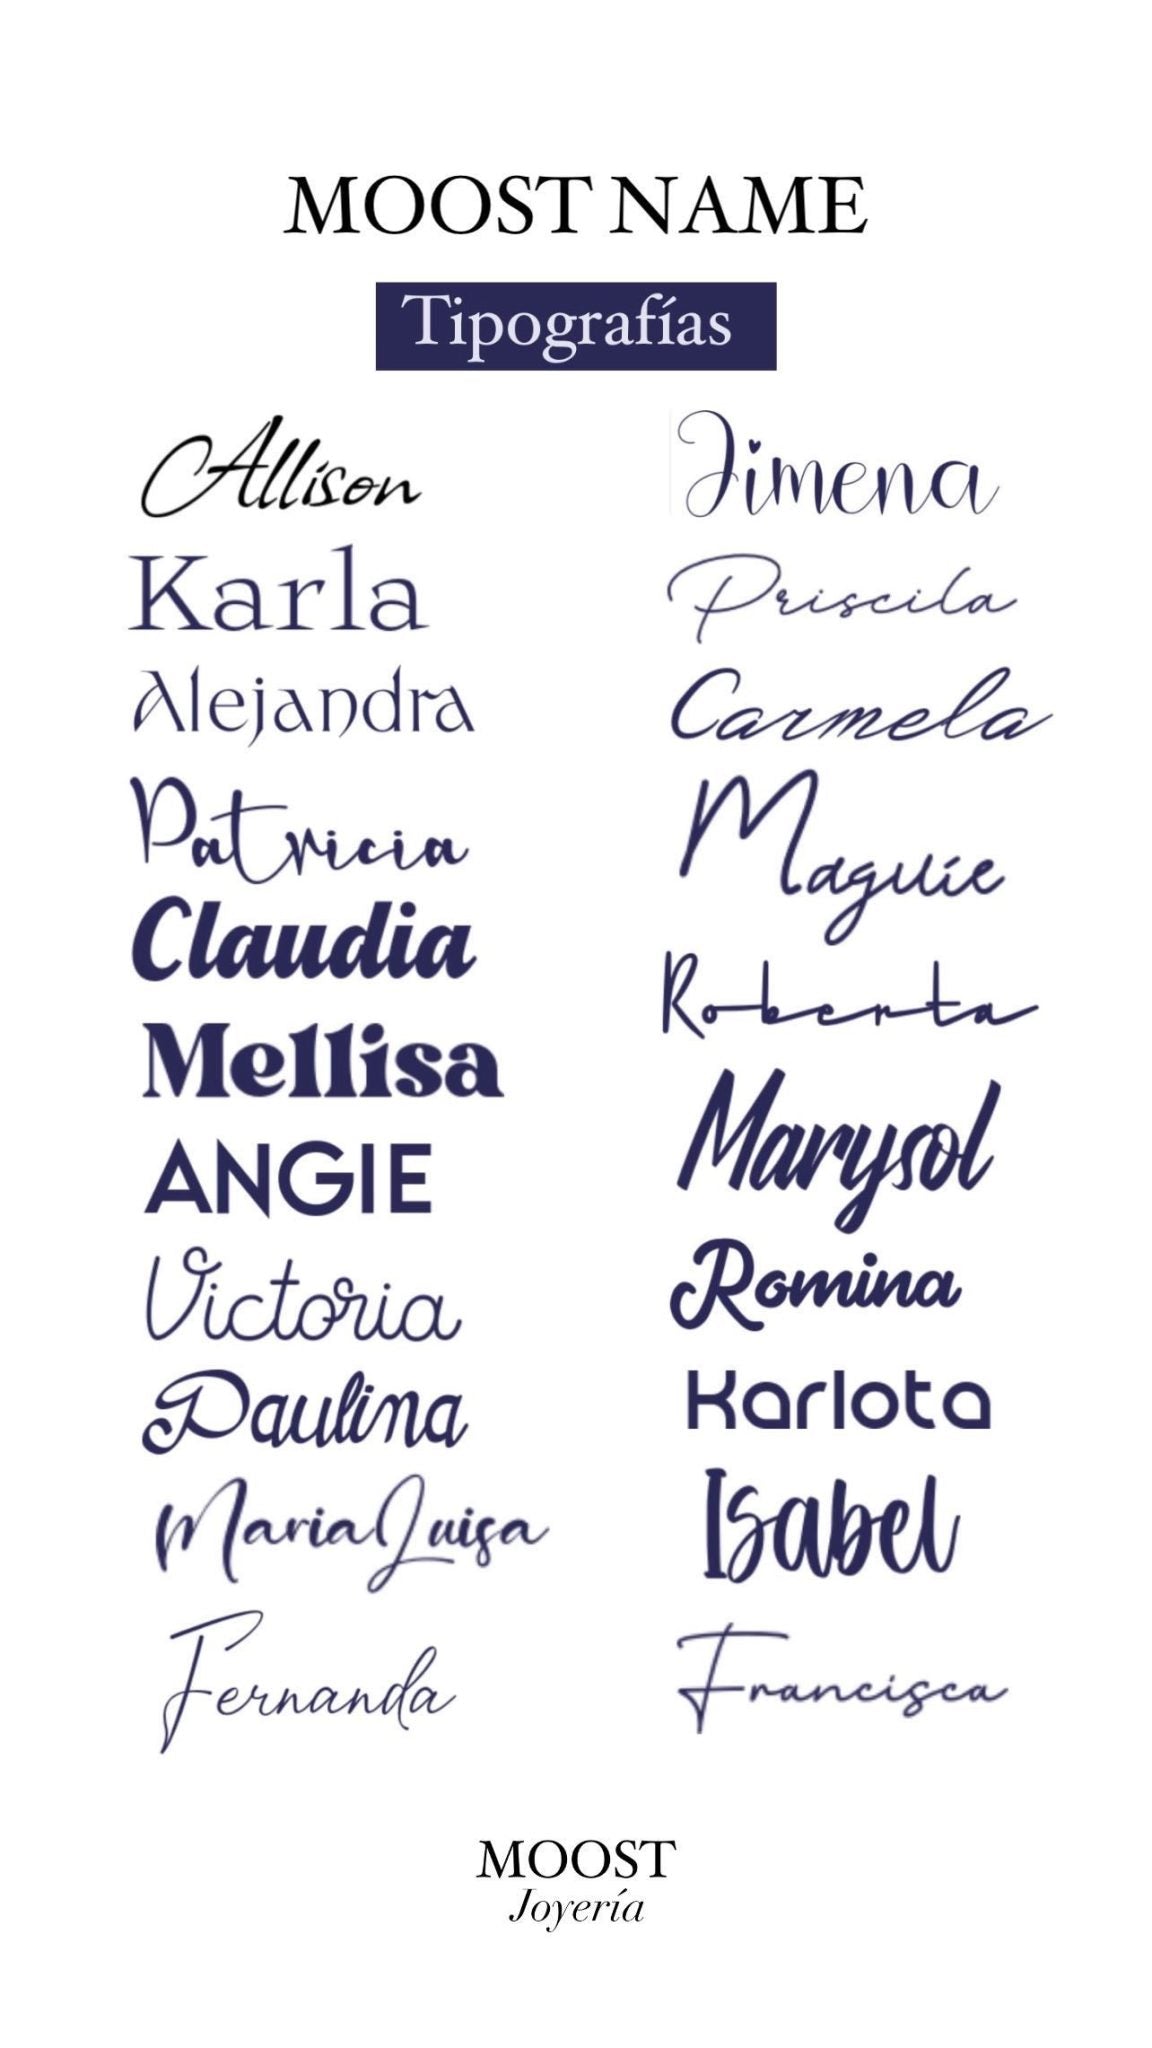 MOOST NAME
Tipografías
Allison
Karla
Alejandra
Patricia
Claudia
Mellisa
ANGIE
Victoria
Paulina
Maria Luisa
Fernanda
Jimena
Priscila
Carmela
Maguie
Roberta
Marysol
Romina
Karlota
Isabel
Francisca
MOOST
Joyería